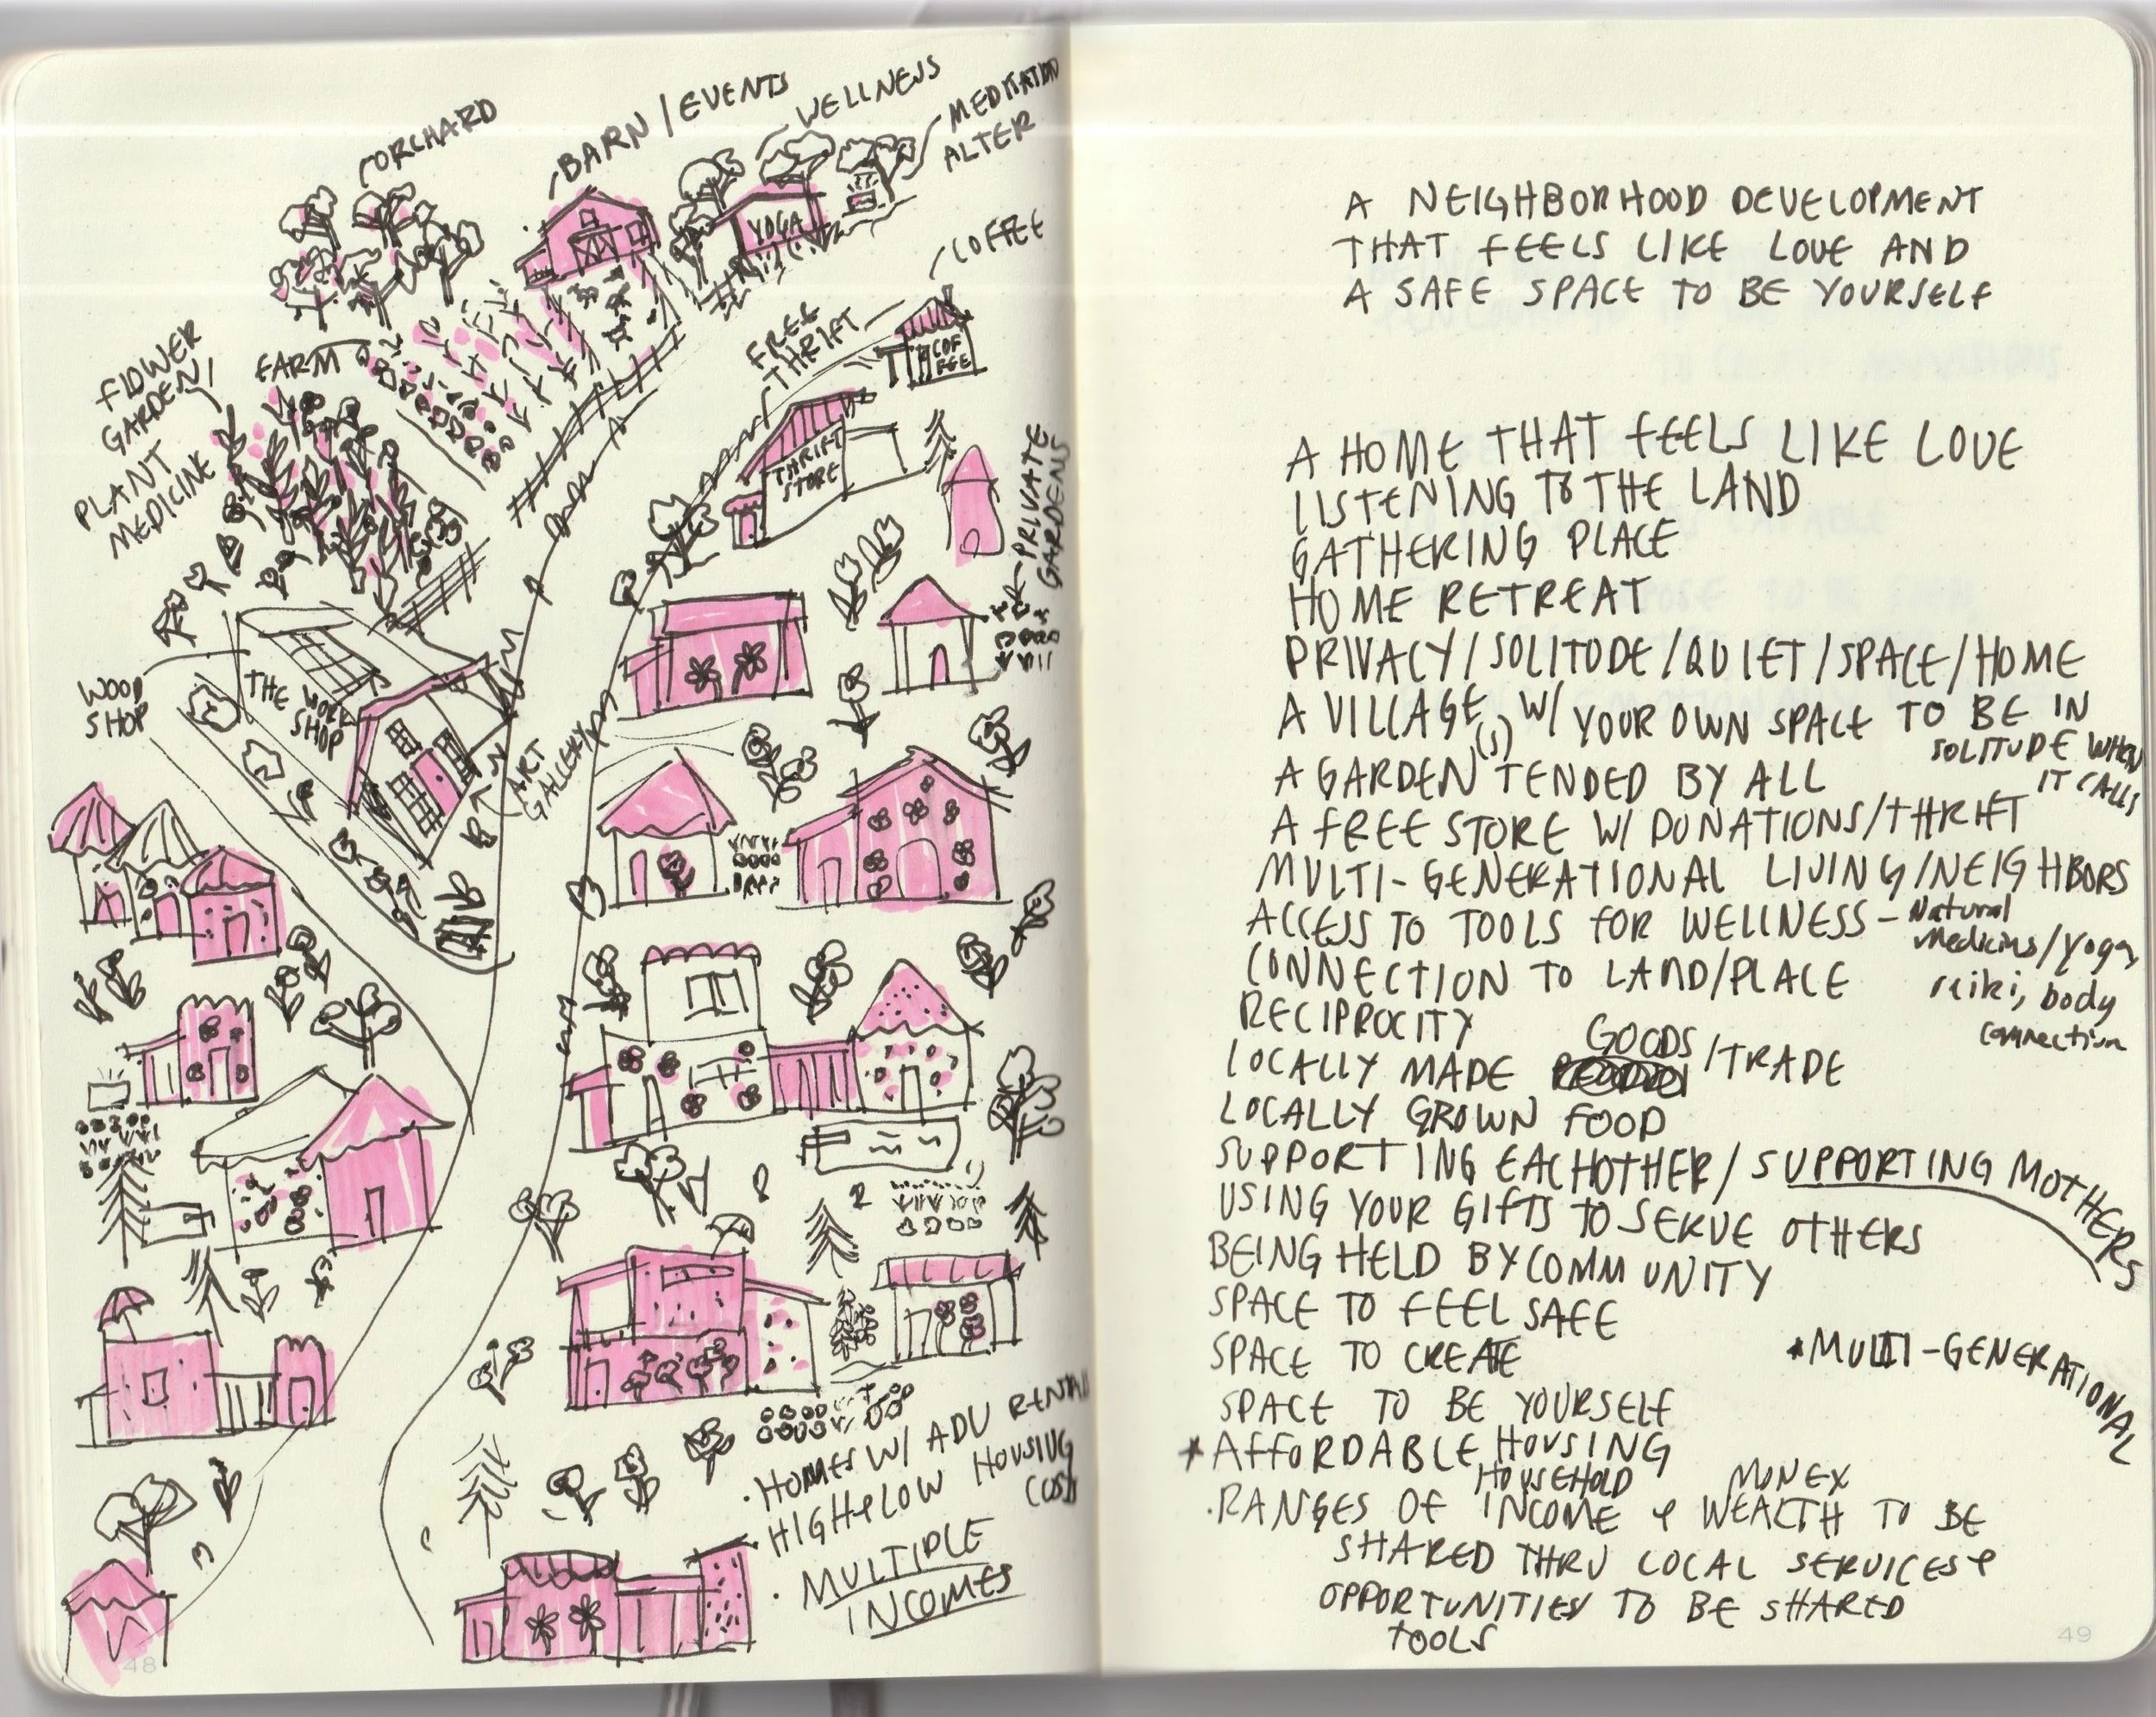 ORCHARD
BARN / EVENTS
WELLNESS
MEDITATION
ALTER
YOGA
COFFEE
COF
FEE
FREE
THRIFT
THRIFT
STORE
FLOWER
GARDEN/
PLANT
MEDICINE
FARM
PRIVATE
GARDENS
WOOD
SHOP
THE
WORK
SHOP
ART
GALLERY
. HOMES W/ ADU RENTALS
. HIGH & LOW HOUSING
COSTS
. MULTIPLE
INCOMES
48
A NEIGHBORHOOD DEVELOPMENT
THAT FEELS LIKE LOVE AND
A SAFE SPACE TO BE YOURSELF
A HOME THAT FEELS LIKE LOVE
LISTENING TO THE LAND
GATHERING PLACE
HOME RETREAT
PRIVACY/SOLITUDE/QUIET/SPACE/HOME
A VILLAGE W/ YOUR OWN SPACE TO BE IN
SOLITUDE WHEN
IT CALLS
A GARDEN(S) TENDED BY ALL
A FREE STORE W/ DONATIONS/THRIFT
MULTI-GENERATIONAL LIVING/NEIGHBORS
ACCESS TO TOOLS FOR WELLNESS - Natural
Medicins/yoga,
reiki, body
connection
CONNECTION TO LAND/PLACE
RECIPROCITY
LOCALLY MADE GOODS/TRADE
LOCALLY GROWN FOOD
SUPPORTING EACHOTHER/SUPPORTING MOTHERS
USING YOUR GIFTS TO SERVE OTHERS
BEING HELD BY COMMUNITY
SPACE TO FEEL SAFE
SPACE TO CREATE
* MULTI-GENERATIONAL
SPACE TO BE YOURSELF
* AFFORDABLE HOUSING
. RANGES OF HOUSEHOLD INCOME & MONEY WEALTH TO BE
SHARED THRU LOCAL SERVICES &
OPPORTUNITIES TO BE SHARED
TOOLS
49